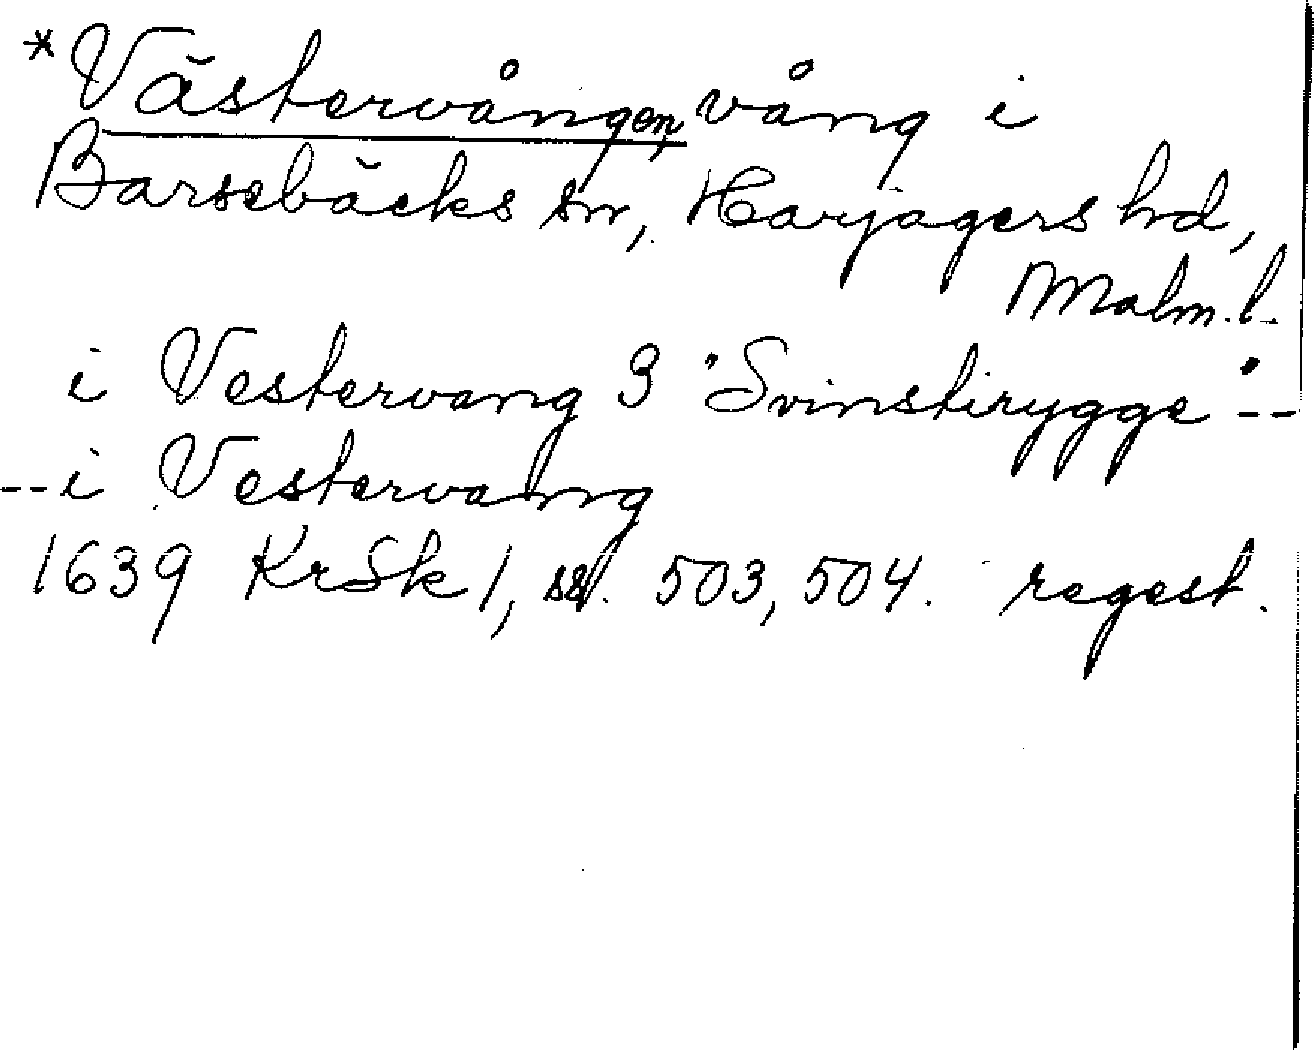 *Västervången, vång i
Barsebäcks sn, Harjagers hd,
Malm. l.
i Vestervang 3 "Svinstirygge" --
-- i Vestervang
1639 KrSk 1, ss. 503, 504. regest.